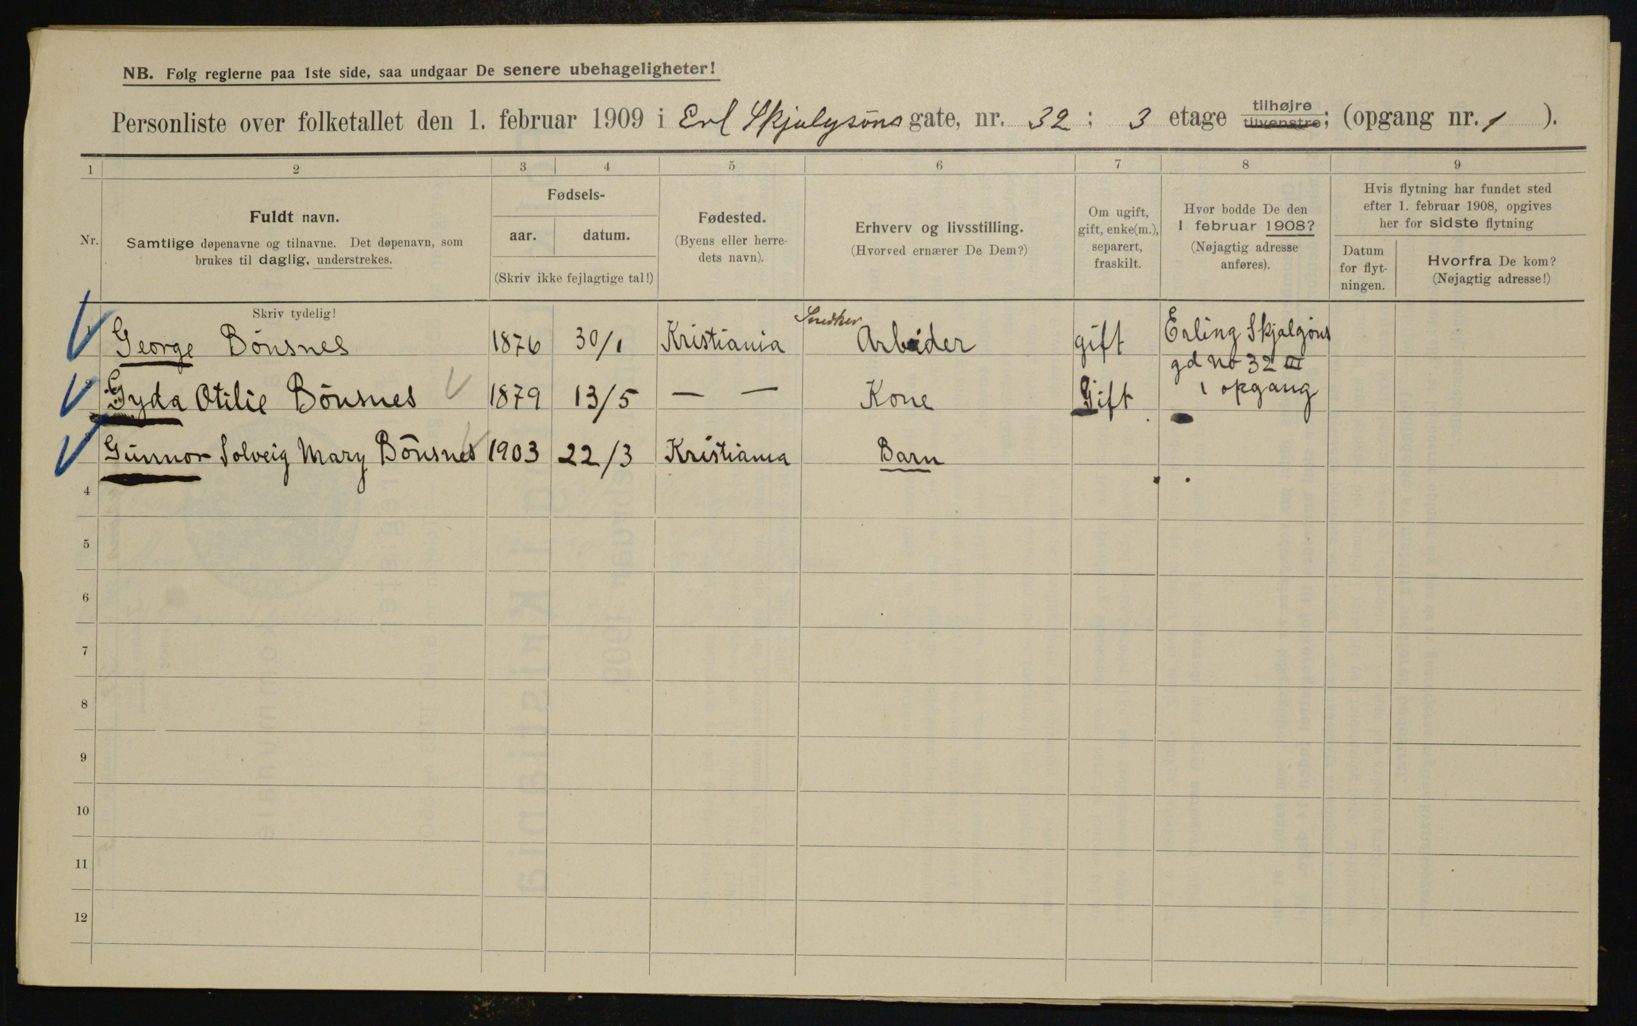 NB. Følg reglerne paa 1ste side, saa undgaar De senere ubehageligheter!
Personliste over folketallet den 1. februar 1909 i Erl Skjalgsöns gate, nr. 32 ; 3 etage tilhøjre tilvenstre; (opgang nr. 1 ).
1 2 3 4 5 6 7 8 9
Nr.
Fuldt navn.
Samtlige døpenavne og tilnavne. Det døpenavn, som
brukes til daglig, understrekes.
Fødsels-
aar. datum.
(Skriv ikke fejlagtige tal!)
Fødested.
(Byens eller herre-
dets navn).
Erhverv og livsstilling.
(Hvorved ernærer De Dem?)
Om ugift,
gift, enke(m.),
separert,
fraskilt.
Hvor bodde De den
1 februar 1908?
(Nøjagtig adresse
anføres).
Hvis flytning har fundet sted
efter 1. februar 1908, opgives
her for sidste flytning
Datum
for flyt-
ningen.
Hvorfra De kom?
(Nøjagtig adresse!)
Skriv tydelig!
1 George Bönsnes 1876 30/1 Kristiania Snedker Arbeider gift Erling Skjalgöns
gd No 32 III
Gyda Otilie Bönsnes 1879 13/5 — — Kone Gift 1 opgang
Gunnor Solveig Mary Bönsnes 1903 22/3 Kristiania Barn
4
5
6
7
8
9
10
11
12